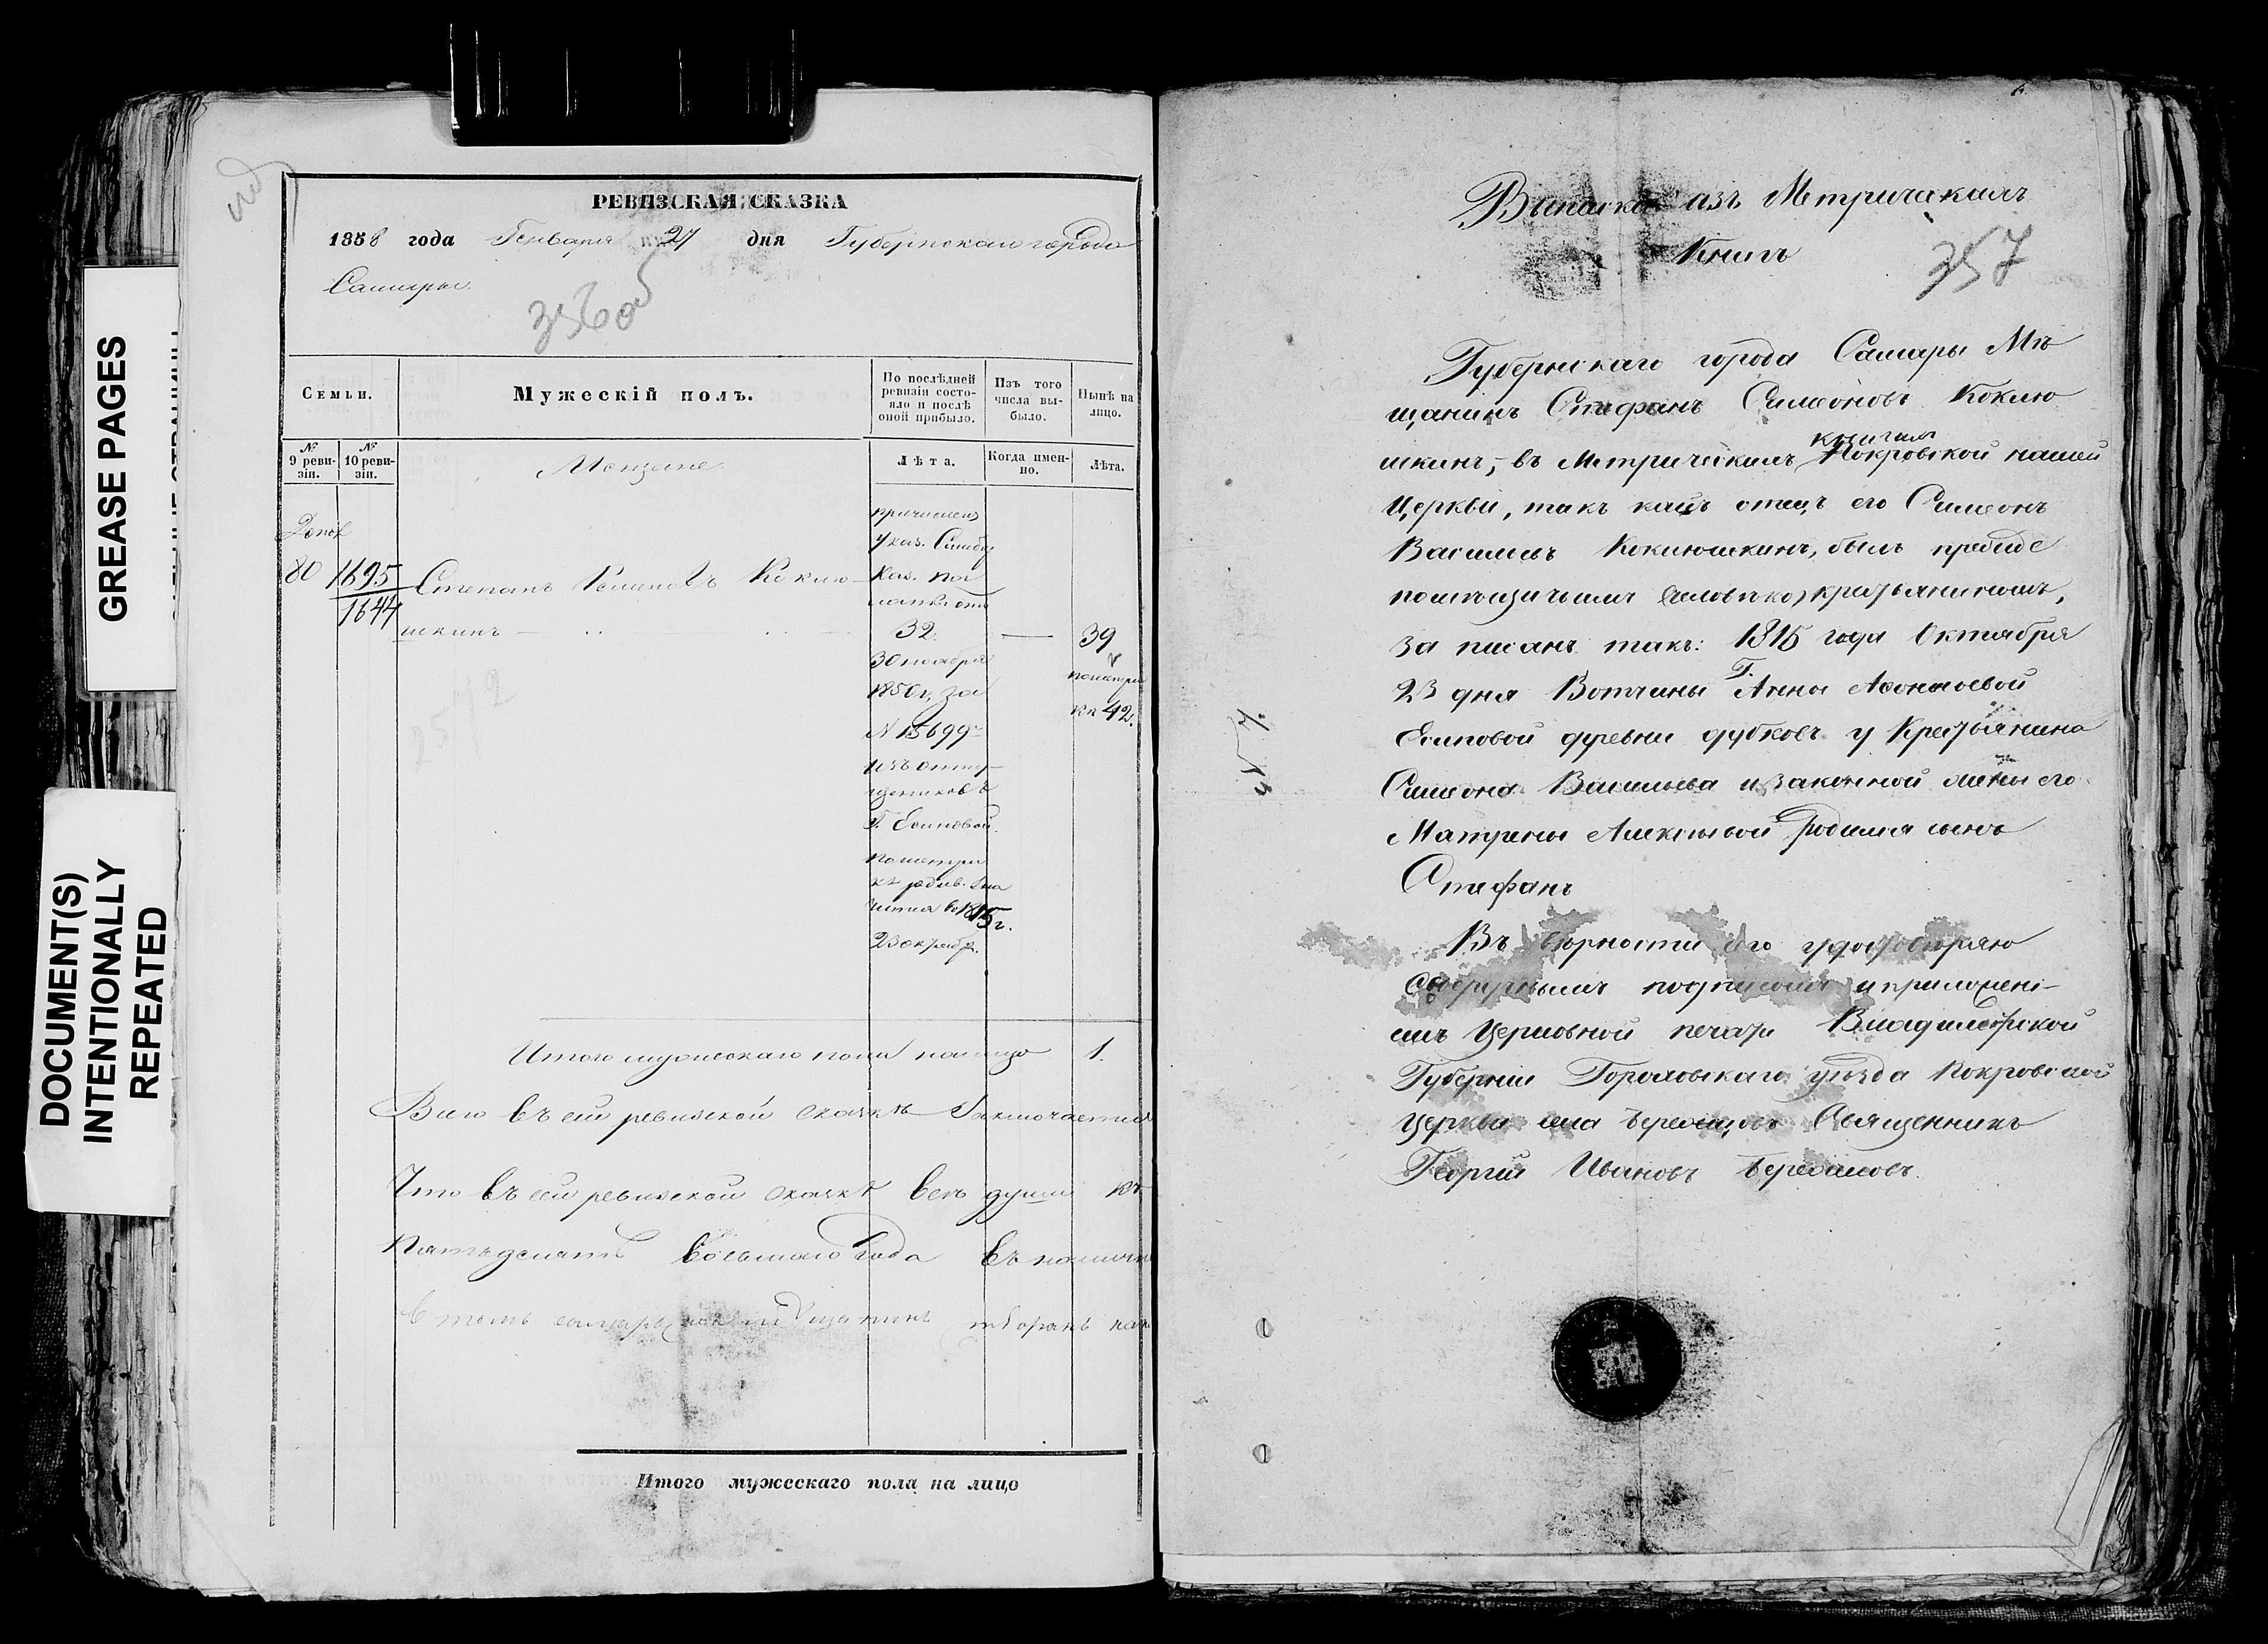 GREASE PAGES
DOCUMENT(S)
INTENTIONALLY
REPEATED
РЕВИЗСКАЯ СКАЗКА
1858 года Генваря 27 дня Губернскаго города
Самары.
356 об
Семьи.
Мужескій полъ.
По послѣдней ревизіи состо-
яло и послѣ оной прибыло.
Изъ того числа вы-
было.
Нынѣ на лицо.
№ 9 реви-
зіи.
№ 10 реви-
зіи.
Мещане
Лѣта.
Когда имен-
но.
Лѣта.
причисленъ
Указ.
Каз. Пал
80 1695 Степанъ Семеновъ Коклю-
1644
шкинъ
32.
39
30 ноября
1850 г. за
№ 15699
изъ отпу-
щенниковъ
Г. Есиповой.
по метри
ка 42.
по метри
1815 г.
23 октября.
Итого мужескаго пола на лицо 1.
Всего въ сей ревизской сказкѣ заключается
Что въ сей ревизской сказкѣ всѣ души къ
Пятьдесятъ восьмаго года въ
Итого мужескаго пола на лицо
Выписка изъ Метрическихъ
Книгъ
357
Губернскаго города Самары Мѣ
щанинъ Стефанъ Симеоновъ Коклю
шкинъ, въ Метрическихъ книгахъ Покровской нашей
Церкви, такъ какъ отецъ его Симеонъ
Васильевъ Коклюшкинъ, былъ прежде
помѣщичьимъ крестьяниномъ,
за писанъ такъ: 1815 года Октября
23 дня Вотчины Г. Анны Афонасьевой
Есиповой деревни Дубковъ у Крестьянина
Симеона Васильева и законной жены его
Матрены Алексѣевой родился сынъ
Стефанъ
Въ вѣрности сего удостовѣряю
своеручнымъ подписомъ и приложені-
емъ Церковной печати Владимирской
Губерніи Гороховскаго уѣзда Покровской
Церкви села Священникъ
Георгій Ивановъ